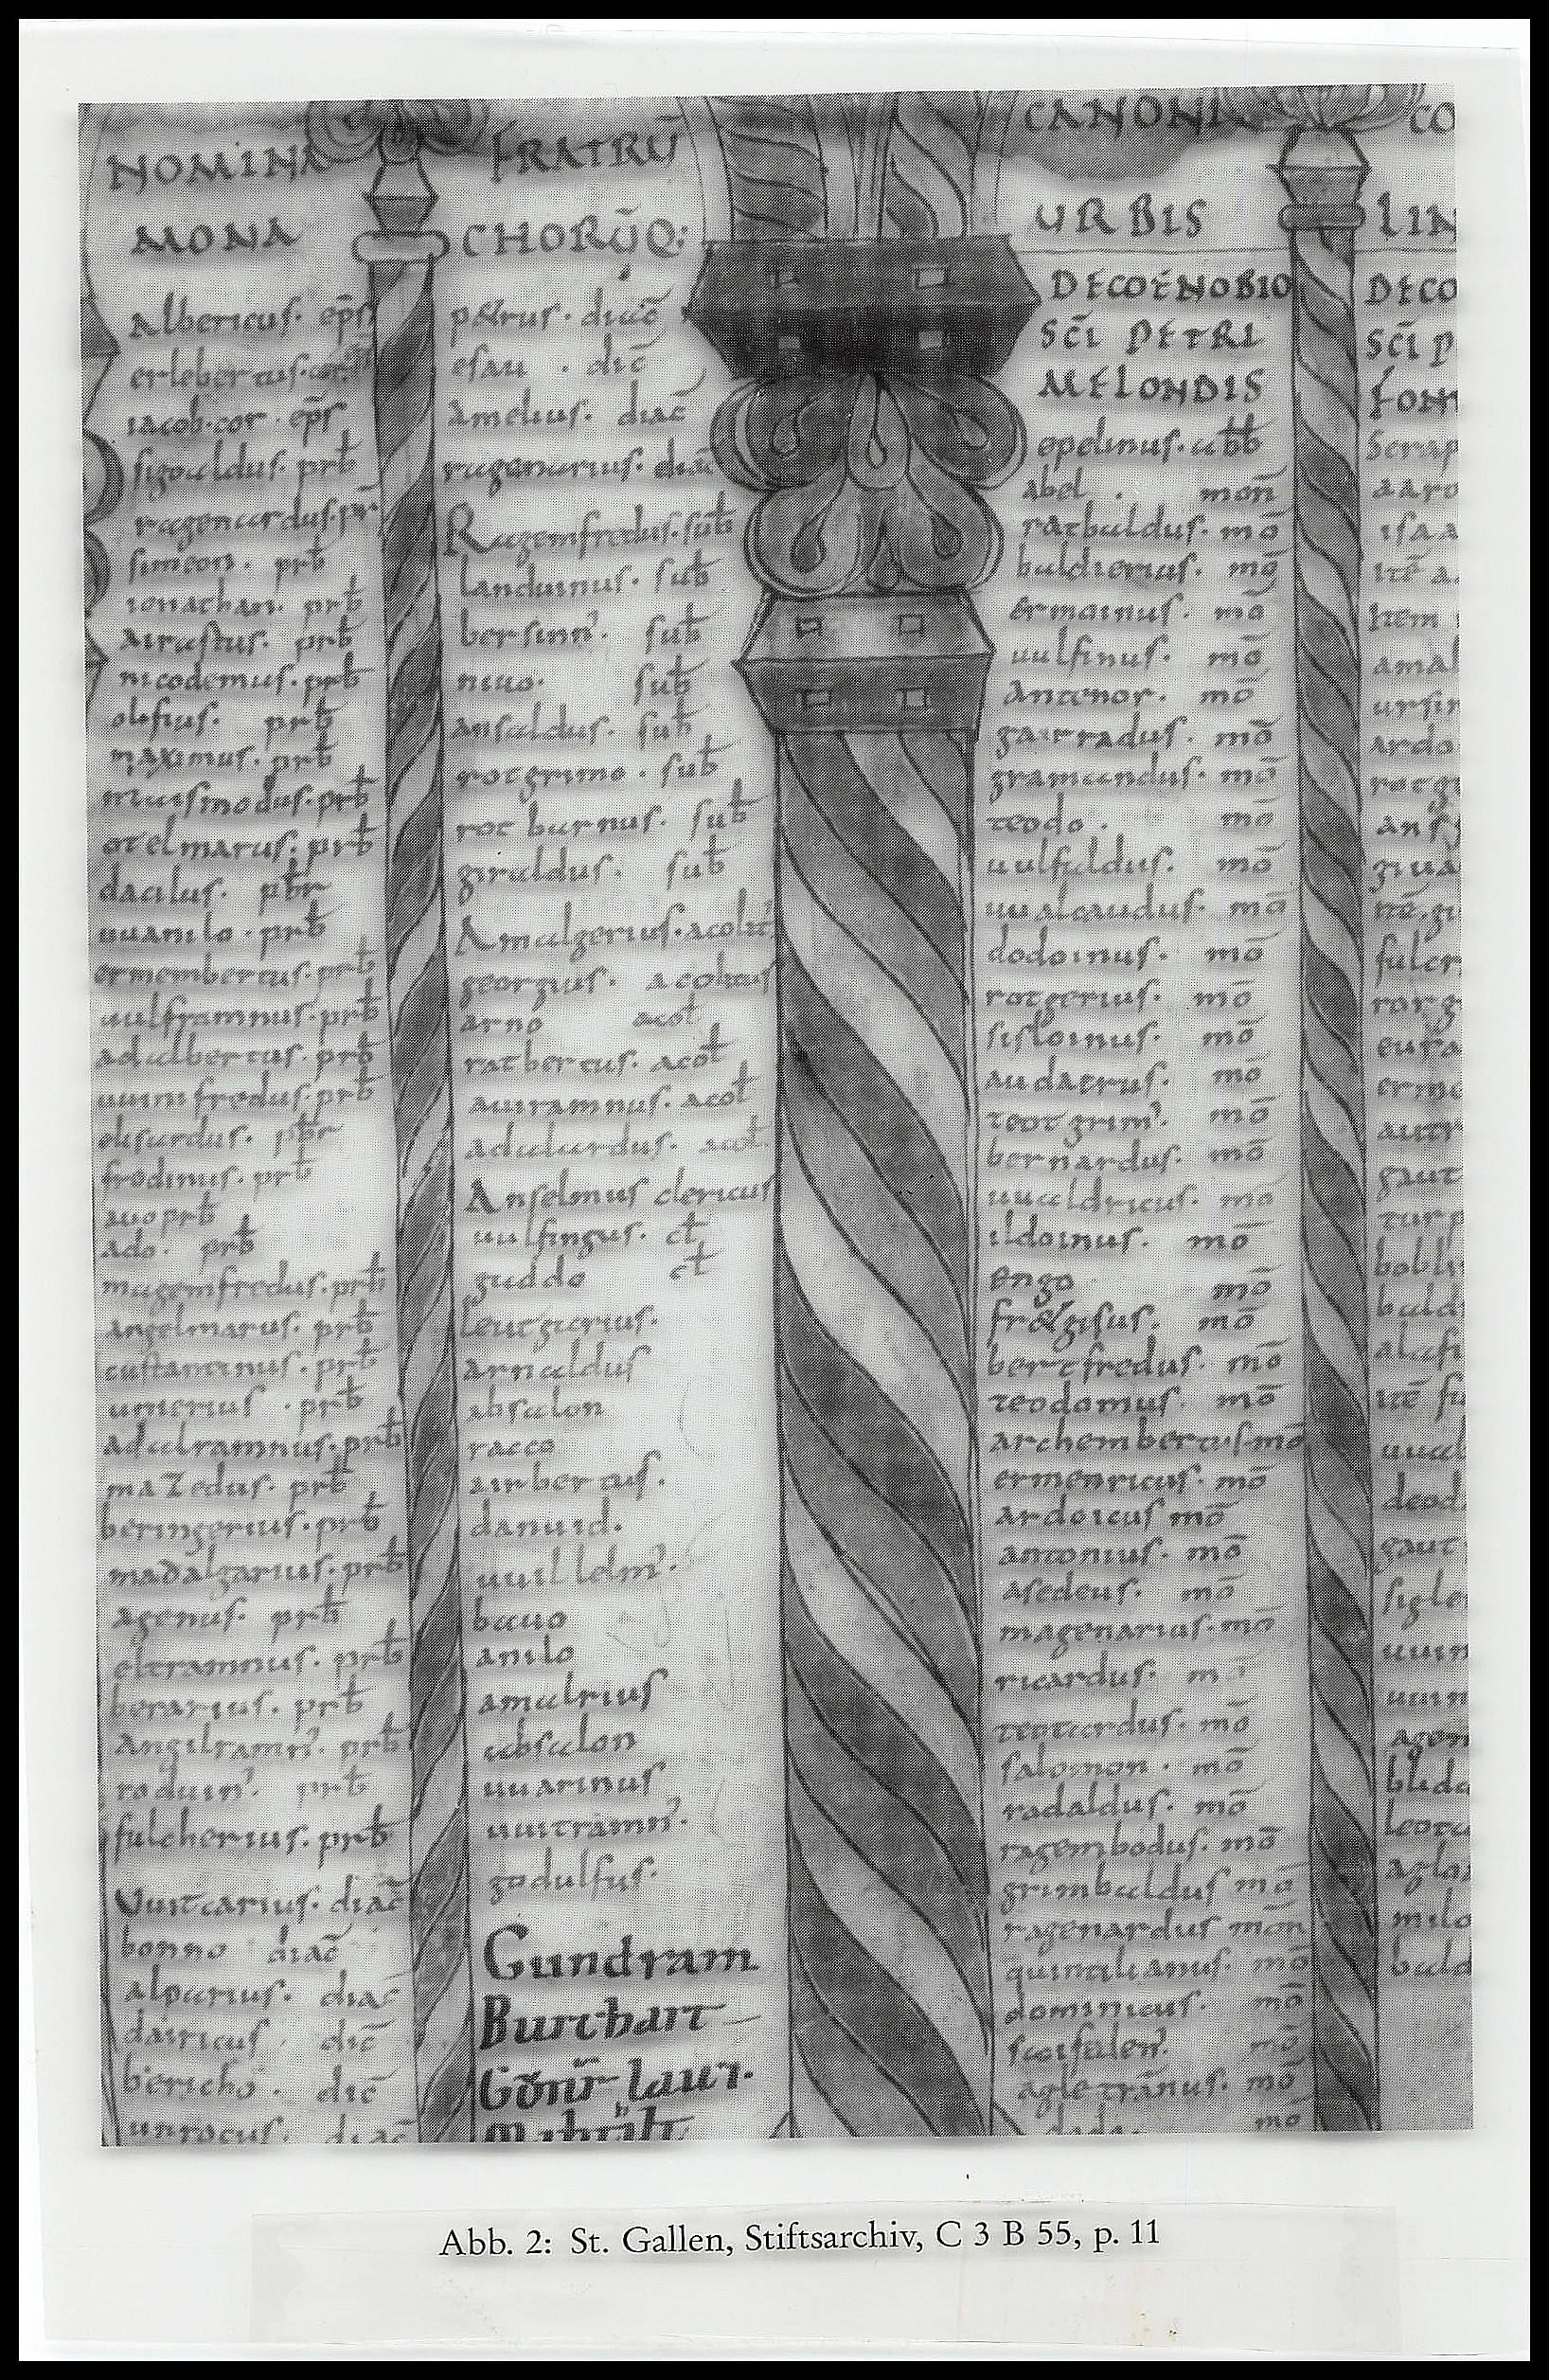 NOMINA
MONA
Albericus. ep̄s
erlebertus.
iacob.cor.ep̄s
sigoaldus. prƀ
ragenardus.
simeon. prƀ
ionathan. prƀ
airastus. prƀ
nicodemus. prƀ
olefius. prƀ
maximus. prƀ
otelmarus. prƀ
dacilus. pƀr
uuanilo. prƀ
ermembertus. prƀ
uulframnus. prƀ
adalbertus. prƀ
uuinifredus. prƀ
elisardus. pƀr
frodinus. prƀ
auo prƀ
ado. prƀ
magemfredus. prƀ
angelmarus. prƀ
custantinus. prƀ
umerius. prƀ
adalramnus. prƀ
mazedus. prƀ
beringerius. prƀ
madalgarius. prƀ
agenus. prƀ
eltramnus. prƀ
berarius. prƀ
Angilramn᾿. prƀ
roduin᾿. prƀ
fulcherius. prƀ
Uuitcarius. diac̄
bonno diac̄
alparius. diac̄
dairicus. dic̄
bericho. dic̄
unrocus. diac̄
FRATRŪ
CHORŪQ:
petrus. diac̄
esau. dic̄
Amelius. diac̄
ragenarius. diac̄
Ragemfredus. suƀ
landuinus. suƀ
bersinn᾿. suƀ
niuo. suƀ
ansaldus. suƀ
rotgrimo. suƀ
rotburnus. suƀ
giraldus. suƀ
Amalgerius. acolit᾿
georgius. acolitus
arno acoł
ratbertus. acoł
auiramnus. acoł
adalardus. acoł
Anselmus clericus
uulfingus. cł
guddo cł
leutgarius.
arnaldus
absalon
racco
airbertus.
dauuid.
uuillelm᾿.
bauo
anilo
amalrius
absalon
uuarinus
uuitramn᾿.
godulfus.
Gundram
Burchart
CANONI
URBIS
DECOENOBIO
SC̄I PETRI
MELONDIS
epelinus. abƀ
abel. mon̄
ratbaldus. mō
baldierius. mō
ermoinus. mō
uulfinus. mō
Antenor. mō
gairradus. mō
gramandus. mō
teodo. mō
uulfaldus. mō
uualcaudus. mō
dodoinus. mō
rotgerius. mō
sisloinus. mō
audaerus. mō
teotgrim᾿. mō
bernardus. mō
uualdricus. mō
ildoinus. mō
engo mō
frotgisus. mō
bertfredus. mō
teodomus. mō
archembertus. mō
ermenricus. mō
ardoicus mō
antonius. mō
asedeus. mō
magenarius. mō
ricardus. m
teotardus. mō
salomon. mō
radaldus. mō
ragembodus. mō
grimbaldus mō
ragenardus mon̄
quintilianus. mō
dominicus. mō
agletrānus. mō
mō
CO
LIN
DECO
SC̄I P
FON
Serap
aaro
isaa
itē a.
Item
amal
ursin
Ardo
rotg
ans
giua
itē. gi
fulcr
rorg
eura
erme
autr
gaut
turp
bobli
bald
alafi
itē fu
uual
deod
gaut
sigle
uuin
uuin
agen
blida
leota
aglo
milo
bald
Abb. 2: St. Gallen, Stiftsarchiv, C 3 B 55, p. 11